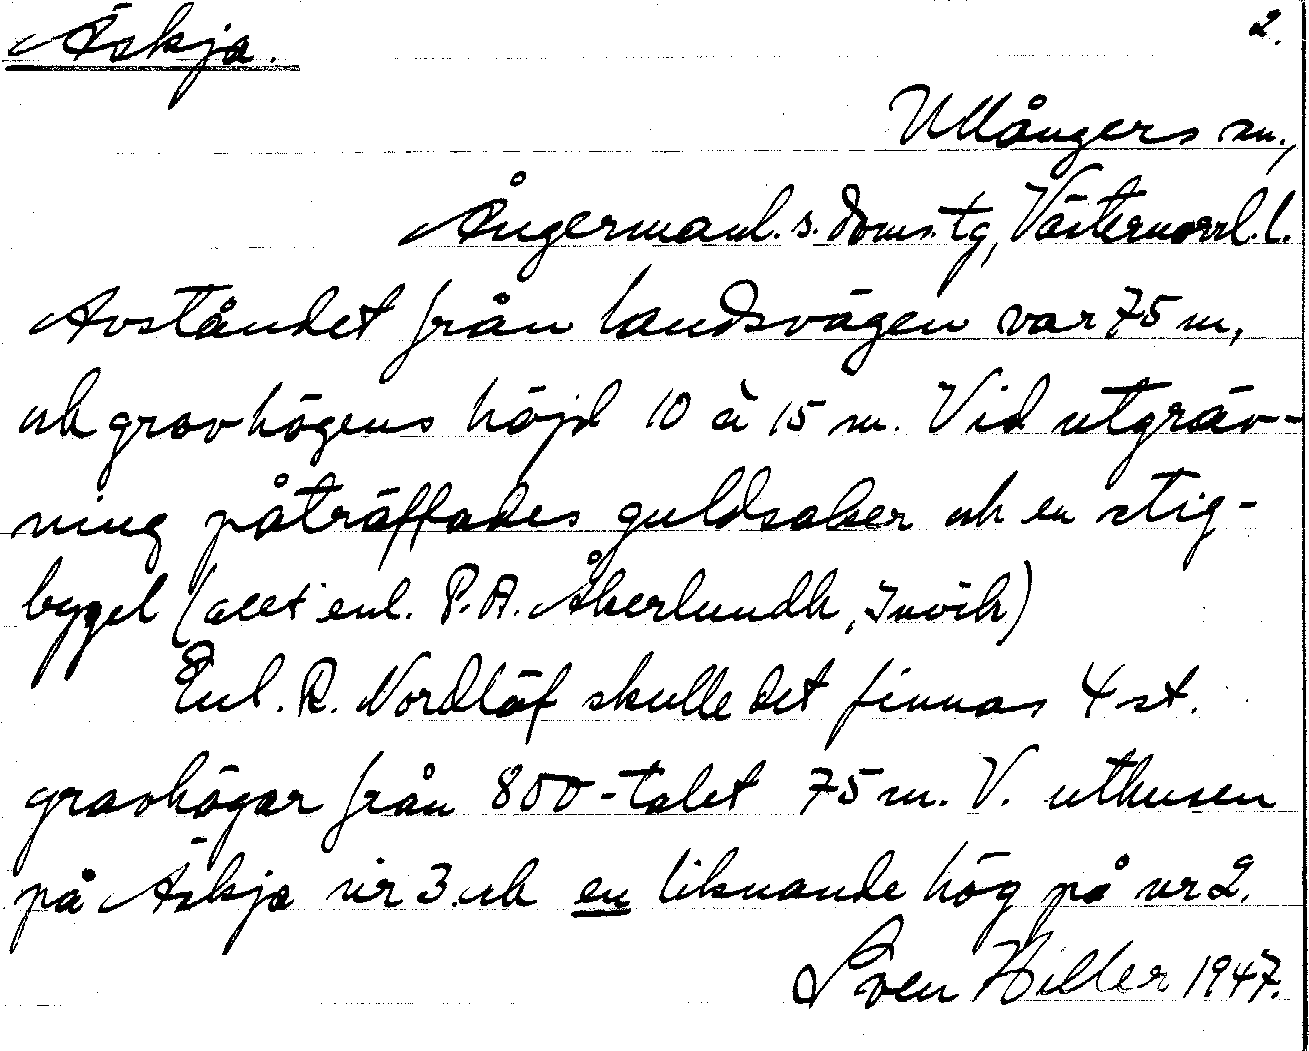 Äskja. 2.
Ullångers sn.,
Ångermanl. s. doms. tg, Västernorrl. l.
Avståndet från landsvägen var 75 m,
och gravhögens höjd 10 à 15 m. Vid utgräv-
ning påträffades guldsaker och en stig-
bygel (allt enl. P. A. Åkerlundh, Invik)
Enl. R. Nordlöf skulle det finnas 4 st.
gravhögar från 800-talet 75 m. V. uthusen
på Äskja nr 3 och en liknande hög på nr 2.
Sven Hiller 1947.